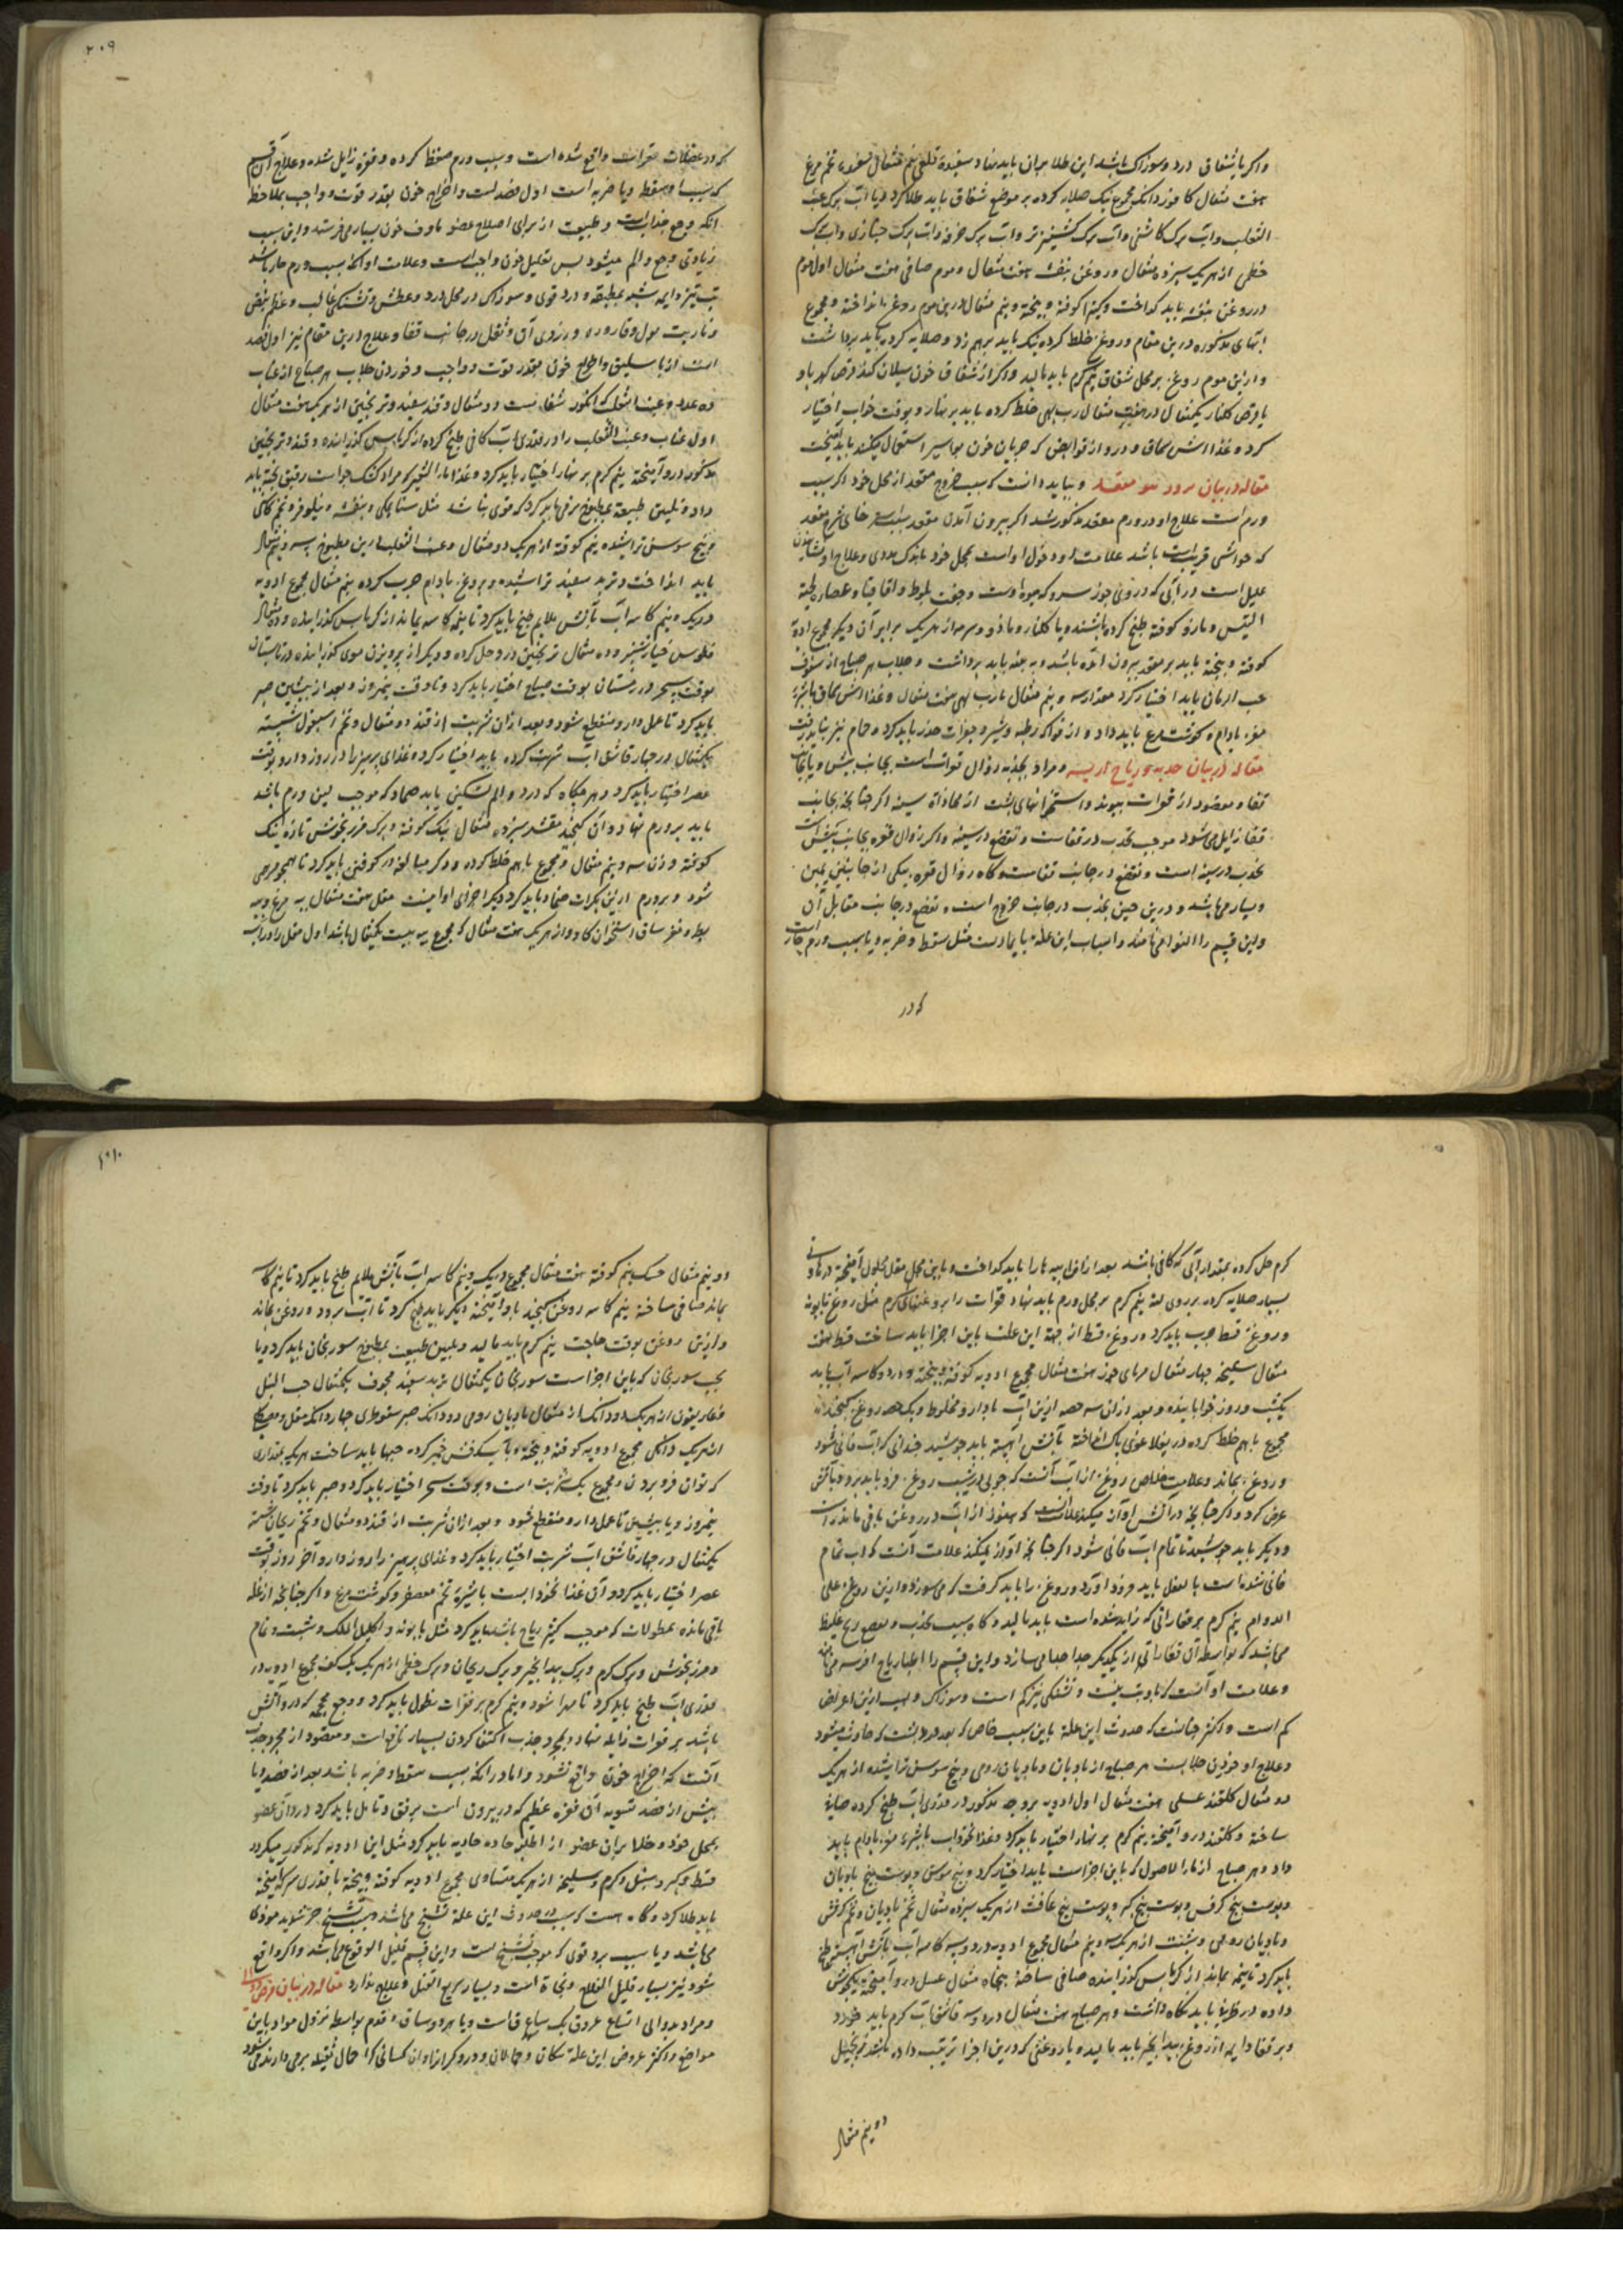 واکر با شقاق درد و سوزاک باشد این طلا بران باید نهاد سفیده قلعی نیم مثقال سفیده تخم مرغ
هفت مثقال کافور دانک مجموع نیک صلایه کرده بر موضع شقاق باید طلا کرد و یا آب برک عنب
الثعلب و آب برک کاسنی و آب برک کشنیز تر و آب برک خرفه و آب برک خبازی و آب برک
خطمی از هریک سیزده مثقال و روغن بنفشه هفت مثقال و موم صافی هفت مثقال اول موم
در روغن بنفشه باید کداخت و کتیرا کوفته و بیخته و نیم مثقال درین موم روغن باید انداخته و مجموع
آبهای مذکوره درین مقام و روغن خلط کرده نیک باید برهم زد و صلایه کرده باید برداشت
و ازین موم روغن بر محل شقاق نیم کرم باید مالید واکر از شقاق خون سیلان کند قرص کهربا و
یا قرص کلنار یکمثقال در هفت مثقال رب بهی خلط کرده باید بر نهار و بوقت خواب اختیار
کرد و غذا آش سماق و درو از قوابض که جریان خون بواسیر استعمال میکنند باید آمیخت
مقاله در بیان برود مقعد و بباید دانست که سبب خروج مقعد از محل خود اکر سبب
ورم است علاج او در ورم مقعد مذکور شد اکر بیرون آمدن مقعد بسبب استرخای شرج مقعد
که حواشی قریب است باشد علامت او دخول او است بمحل خود باندک مددی و علاج او نشانیدن
علیل است در آبی که درو جوز سرو که میوه اوست و جفت بلوط و اقاقیا و عصاره لحیة
التیس و مازو کوفته طبخ کرده باشند و یا کلنار و مازو و سرمه از هریک برابر آن دیکر مجموع ادویه
کوفته و بیخته باید بر مقعد بیرون آمده باشد و به پنبه باید برداشت و جلاب هر صباح از سفوف
حب الرمان باید اختیار کرد مقدار سه و نیم مثقال با رب بهی هفت مثقال و غذا آش سماق با شیرهٔ
مغز بادام و کوشت مرغ باید داد و از فواکه رطبه و شیر و جغرات حذر باید کرد و حمام نیز نباید رفت
مقاله در بیان حدبه و ریاح افرسه و مراد بحدبه زوال فقرات است بجانب پیش و یا بجانب
قفا و مقصود از فقرات پیوند استخوانهای پشت از محاذاة سینه اکر چنانچه بجانب
قفا زایل می شود موجب تحدب در قفاست و تقعّع در سینه واکر زوال فقره بجانب پیش است
تحدب در سینه است و تقعّع در جانب قفاست و کاه زوال فقره بیکی از جانبین یمین
و یسار می باشد و درین حین تحدب در جانب خروج است و تقعع در جانب مقابل آن
و این قسم را التوا می نامند و اسباب این علة یا بادیست مثل سقطه و ضربه و یا بسبب ورم حار است
که در
۲۰۹
که در عضلات فقرات واقع شده است و سبب ورم ضغط کرده و فقره زایل شده و علاج آن قسم
که سبب او سقطه و یا ضربه است اول فصد است و اخراج خون بقدر قوت و واجب بملاحظه
آنکه وجع جذاب است و طبیعت از برای اصلاح عضو ماوف خون بسیار می فرستد و این سبب
زیادتی وجع و الم میشود پس تقلیل خون واجب است و علامت او آنکه بسبب ورم حار باشد
تب تیز دایمه شبه بمطبقه و درد قوی و سوزاک در محل درد و عطش و تشنکی غالب و عظم نبض
و ناریت بول و قاروره و زردی آن و ثقل در جانب قفا و علاج درین مقام نیز اول فصد
است از باسلیق و اخراج خون بقدر قوت و واجب و خوردن جلاب هر صباح از عناب
ده عدد و عنب الثعلب که انکور شغالست دو مثقال و قند سفید و ترنجبین از هر یک هفت مثقال
اول عناب و عنب الثعلب را در قدری آب کافی طبخ کرده از کرباس کذرانده و قند و ترنجبین
مذکور درو آمیخته نیم کرم بر نهار اختیار باید کرد و غذا ماء الشعیر که مراد کشک جو است رقیق پخته باید
داد و تلیین طبیعة بمطبوخ نرمی باید کرد که قوی نباشد مثل سنا مکی و بنفشه و نیلوفر و تخم کاسنی
و بیخ سوسن تراشیده نیم کوفته از هریک دو مثقال و عنب الثعلب درین مطبوخ سه و نیم مثقال
باید انداخت و تربد سفید تراشیده و بروغن بادام چرب کرده نیم مثقال مجموع ادویه
در یک و نیم کاسه آب بآتش ملایم طبخ باید کرد تا نیمه کاسه بماند از کرباس کذرانده و ده مثقال
فلوس خیارشنبر و ده مثقال ترنجبین درو حل کرده و دیکر از پرویزن موی کذرانده در تابستان
بوقت سحر و در زمستان بوقت صباح اختیار باید کرد و تا وقت نیمروز و بعد از پیشین صبر
باید کرد تا عمل دارو منقطع شود و بعد ازان شربت از قند دو مثقال و تخم اسبغول شسته
یکمثقال در چهار قاشق آب شربت کرده باید اختیار کرد و غذای پرهیز را در روز دارو بوقت
عصر اختیار باید کرد و هر چکاه که درد و الم تسکین یابد ضماد که موجب لین ورم باشد
باید بر ورم نهاد و آن کنجد مقشر سیزده مثقال نیک کوفته و برک مرزنجوش تازه نیک
کوفته وزن سه و نیم مثقال و مجموع باهم خلط کرده و دیکر مبالغه در کوفتن باید کرد تا همچو مرهمی
شود و بر ورم ازین بکرات ضماد باید کرد دیکر اجزای او اینست مقل هفت مثقال پیه مرغ و پیه
بط و مغز ساق استخوان کاو و از هریک هفت مثقال که مجموع پیه بیست یکمثقال باشد اول مقل را در آب
کرم حل کرده بمقدار آبی که کافی باشد بعد ازان پیه ها را باید کداخت و باین محل مقل محلول آمیخته در هاونی
بسیار صلایه کرده بر روی لته نیم کرم بر محل ورم باید نهاد و فقرات را بروغنهای کرم مثل روغن بابونه
و روغن قسط چرب باید کرد و روغن قسط از جهة این علت باین اجزا باید ساخت قسط هفت
مثقال سلیخه چهار مثقال مرمای حوز هفت مثقال مجموع ادویه کوفته و بیخته و در دو کاسه آب باید
یکشب و روز خوابانیده و بعد ازان سه حصه ازین آب با دارو مخلوط و یک حصه روغن کنجد
مجموع باهم خلط کرده در پوغلاغوی پاک انداخته بآتش آهسته باید جوشید چندانی که آب فانی شود
و روغن بماند و علامت خلاص روغن از آب آنست که چوبی در شیب روغن فرو باید برد و بآتش
عرض کرد و اکر چنانچه در آتش آواز میکند علامت آنست که هنوز از آب در روغن باقی مانده است
و دیکر باید جوشید تا تمام آب فانی شود اکر چنانچه آواز نمیکند علامت آنست که آب تمام
فانی شده است بالفعل باید فرود آورد و روغن را باید کرفت که می سوزد و ازین روغن علی
الدوام نیم کرم بر فقاراتی که زایل شده است باید مالید و کاه سبب تحدب و تقعع ریح غلیظ
می باشد که بواسطه آن فقاراتی از یکدیکر جدا جدا می سازد و این قسم را اطبا ریاح افرسه می نامند
و علامت او آنست که با تب نیست و تشنکی نیز کم است و سوزاک و لهیب ازین اعراض
کم است و اکثر چنانست که حدوث این علة باین سبب خاص که بعد درد پشت که حادث میشود
و علاج او خوردن جلابست هر صباح از بادیان و بادیان رومی و بیخ سوسن تراشیده از هریک
دو مثقال کلقند عسلی هفت مثقال اول ادویه بروجه مذکور در قدری آب طبخ کرده صافی
ساخته و کلقند درو آمیخته نیم کرم بر نهار اختیار باید کرد و غذا نخوداب با شیره مغز بادام باید
داد و هر صباح از ماء الاصول که باین اجزاست باید اختیار کرد و بیخ سوسن و پوست بیخ بادیان
و پوست بیخ کرفس و پوست بیخ کبر و پوست بیخ غافث از هریک سیزده مثقال تخم بادیان و تخم کرفس
و بادیان رومی و شبت از هریک سه و نیم مثقال مجموع ادویه در دو سه کاسه آب بآتش آهسته طبخ
باید کرد تا نیمه بماند از کرباس کذرانده صافی ساخته پنجاه مثقال عسل درو آمیخته یکجوش
داده در ظرفی باید نکاه داشت و هر صباح هفت مثقال در دو سه قاشق آب کرم باید خورد
و بر قفا دایم از روغن بیدانجیر باید مالید و یا روغنی که درین اجزا ترتیب داده باشند زنجبیل
دو نیم مثقال
۲۱۰
دو نیم مثقال خسک نیم کوفته هفت مثقال مجموع در یک و نیم کاسه آب بآتش ملایم طبخ باید کرد تا نیم کاسه
بماند صافی ساخته نیم کاسه روغن کنجد باو آمیخته دیکر باید طبخ کرد تا آب برود و روغن بماند
و ازین روغن بوقت حاجت نیم کرم باید مالید و تلیین طبیعت بمطبوخ سورنجان باید کرد و یا
بحب سورنجان که باین اجزاست سورنجان یکمثقال تربد سفید مجوف یکمثقال حب النیل
و غاریقون از هریک دو دانک از مثقال بادیان رومی دو دانک صبر سقوطری چهار دانک مقل و مصطکی
از هریک دانکی مجموع ادویه کوفته و بیخته و بآب کرفس خمیر کرده حبها باید ساخت هریک بمقداری
که توان فرو برد و مجموع یک شربت است و بوقت سحر اختیار باید کرد و صبر باید کرد تا وقت
نیمروز و یا پیشین تا عمل دارو منقطع شود و بعد ازان شربت از قند دو مثقال و تخم ریحان شسته
یکمثقال در چهار قاشق آب شربت اختیار باید کرد و غذای پرهیز را روز دارو آخر روز بوقت
عصر اختیار باید کرد و آن غذا نخودابست با شیرهٔ تخم معصفر و کوشت مرغ و اکر چنانچه از علة
باقی مانده بطولات که موجب تکثیر ریاح باشد باید کرد مثل بابونه و اکلیل الملک و شبت و نمام
و مرزنجوش و برک کرم و برک بیدانجیر و برک ریحان و برک خطمی از هریک یک کف مجموع ادویه در
قدری آب طبخ باید کرد تا مهرا شود و نیم کرم بر فقرات نطول باید کرد و وضع محجمه که درو آتش
باشد بر فقرات زایله نهاد و بمجرد جذب اکتفا کردن بسیار نافع است و مقصود از مجرد جذب
آنست که اخراج خون واقع نشود و اما در آنکه بسبب سقطه و ضربه باشد بعد از فصد و یا
پیش از فصد تسویه آن فقره عظیم که در بیرون است برفق و تامل باید کرد در وان عضو
بمحل خود و طلا بران عضو از اطلیه حاده جاذبه باید کرد مثل این ادویه که مذکور میکردد
قسط و کبر و سنبل و کرم و سلیخه از هریک متساوی مجموع ادویه کوفته و بیخته با قدری سرکه آمیخته
باید طلا کرد و کاه هست که سبب حدوث این علة تشنج می باشد و سبب تشنج حر شدید موذی
می باشد و یا سبب برد قوی که موجب تشنج است و این قسم قلیل الوقوع می باشد و اکر واقع
شود نیز بسیار قلیل الفلاح و نجاة است و بسیار سریع القتل و علاج ندارد مقاله در بیان مرض دوالی
و مراد بدوالی اتساع عروق یک ساق قاست و یا هر دو ساق و قدم بواسطه نزول مواد باین
مواضع و اکثر عروض این علة سکان و حمالان و درودکران و ان کسانی که احمال ثقیله بر می دارند می شود